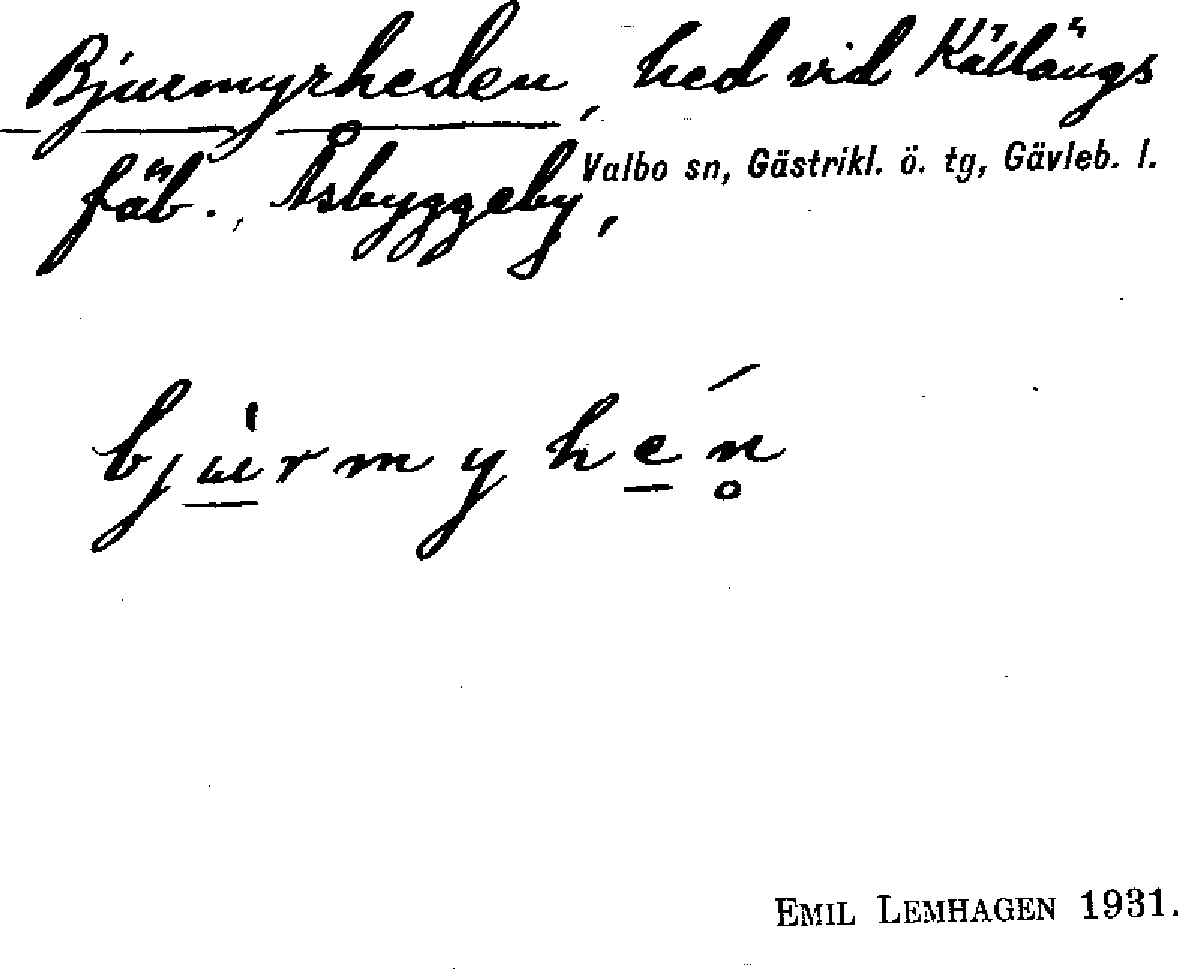 Bjurmyrheden, hed vid Källängs
fäb., Åsbyggeby,
Valbo sn, Gästrikl. ö. tg, Gävleb. l.
bjùrmyhén̥
EMIL LEMHAGEN 1931.